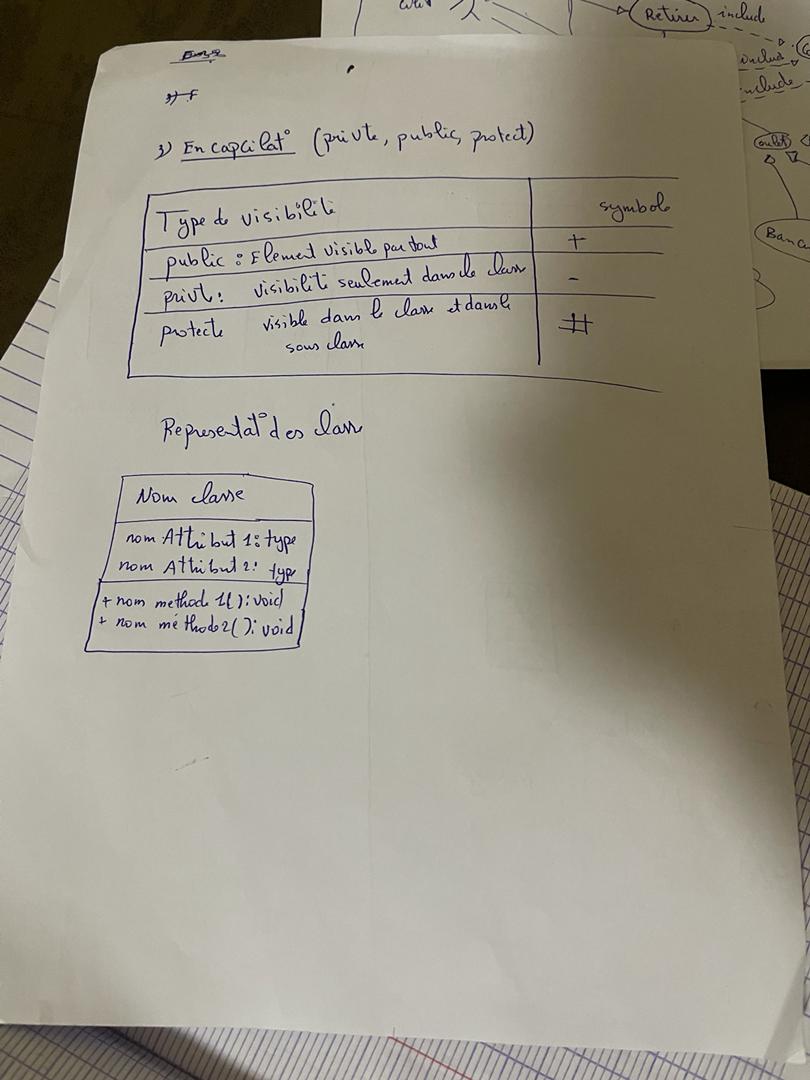 Retirer include
include
include
Banc
3) En capcilat° (privte, public, protect)
Type de visibilité symbole
public : Element visible partout +
privt : visibilité seulement dans le classe -
protecte visible dans le classe et dans le #
sous classe
Representat° des classe
Nom classe
nom Attribut 1: type
nom Attribut 2: type
+ nom methode 1( ): void
+ nom méthode 2( ): void